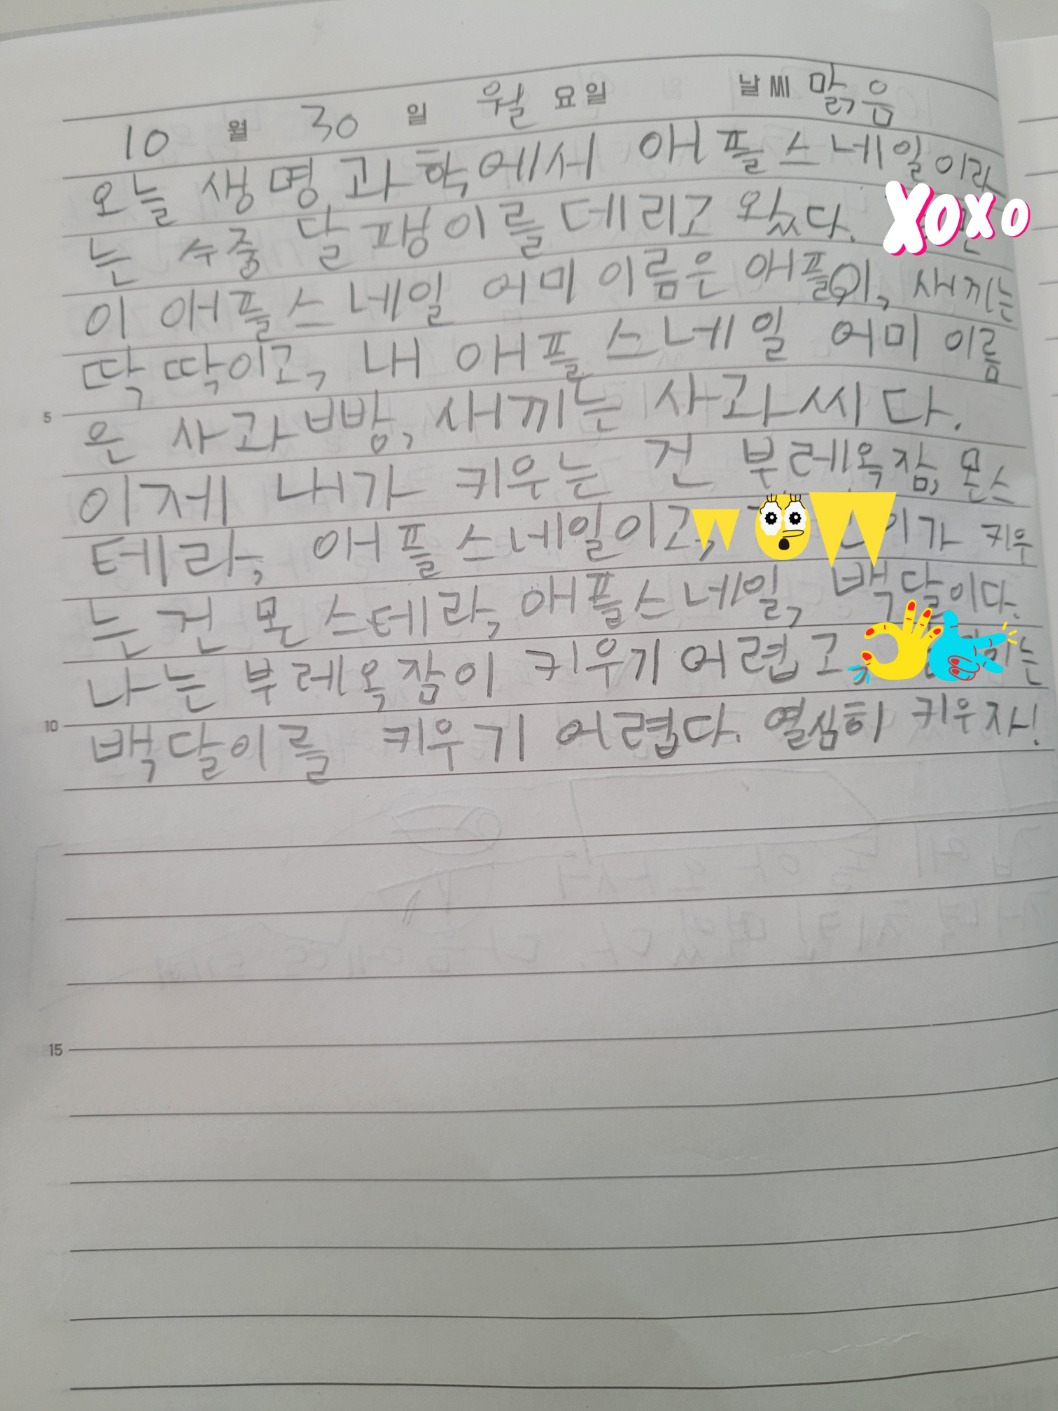 10 월 30 일 월 요일 날씨 맑음
오늘 생명과학에서 애플스네일이라
는 수중 달팽이를 데리고 왔다. XOXO
이 애플스네일 어미 이름은 애플이, 새끼는
딱딱이고, 내 애플스네일 어미 이름
5 은 사과빵, 새끼는 사과씨다.
이제 내가 키우는 건 부레옥잠, 몬스
테라, 애플스네일이고, 키우
는 건 몬스테라, 애플스네일, 백달이다.
나는 부레옥잠이 키우기 어렵고,
10 백달이를 키우기 어렵다. 열심히 키우자!
15